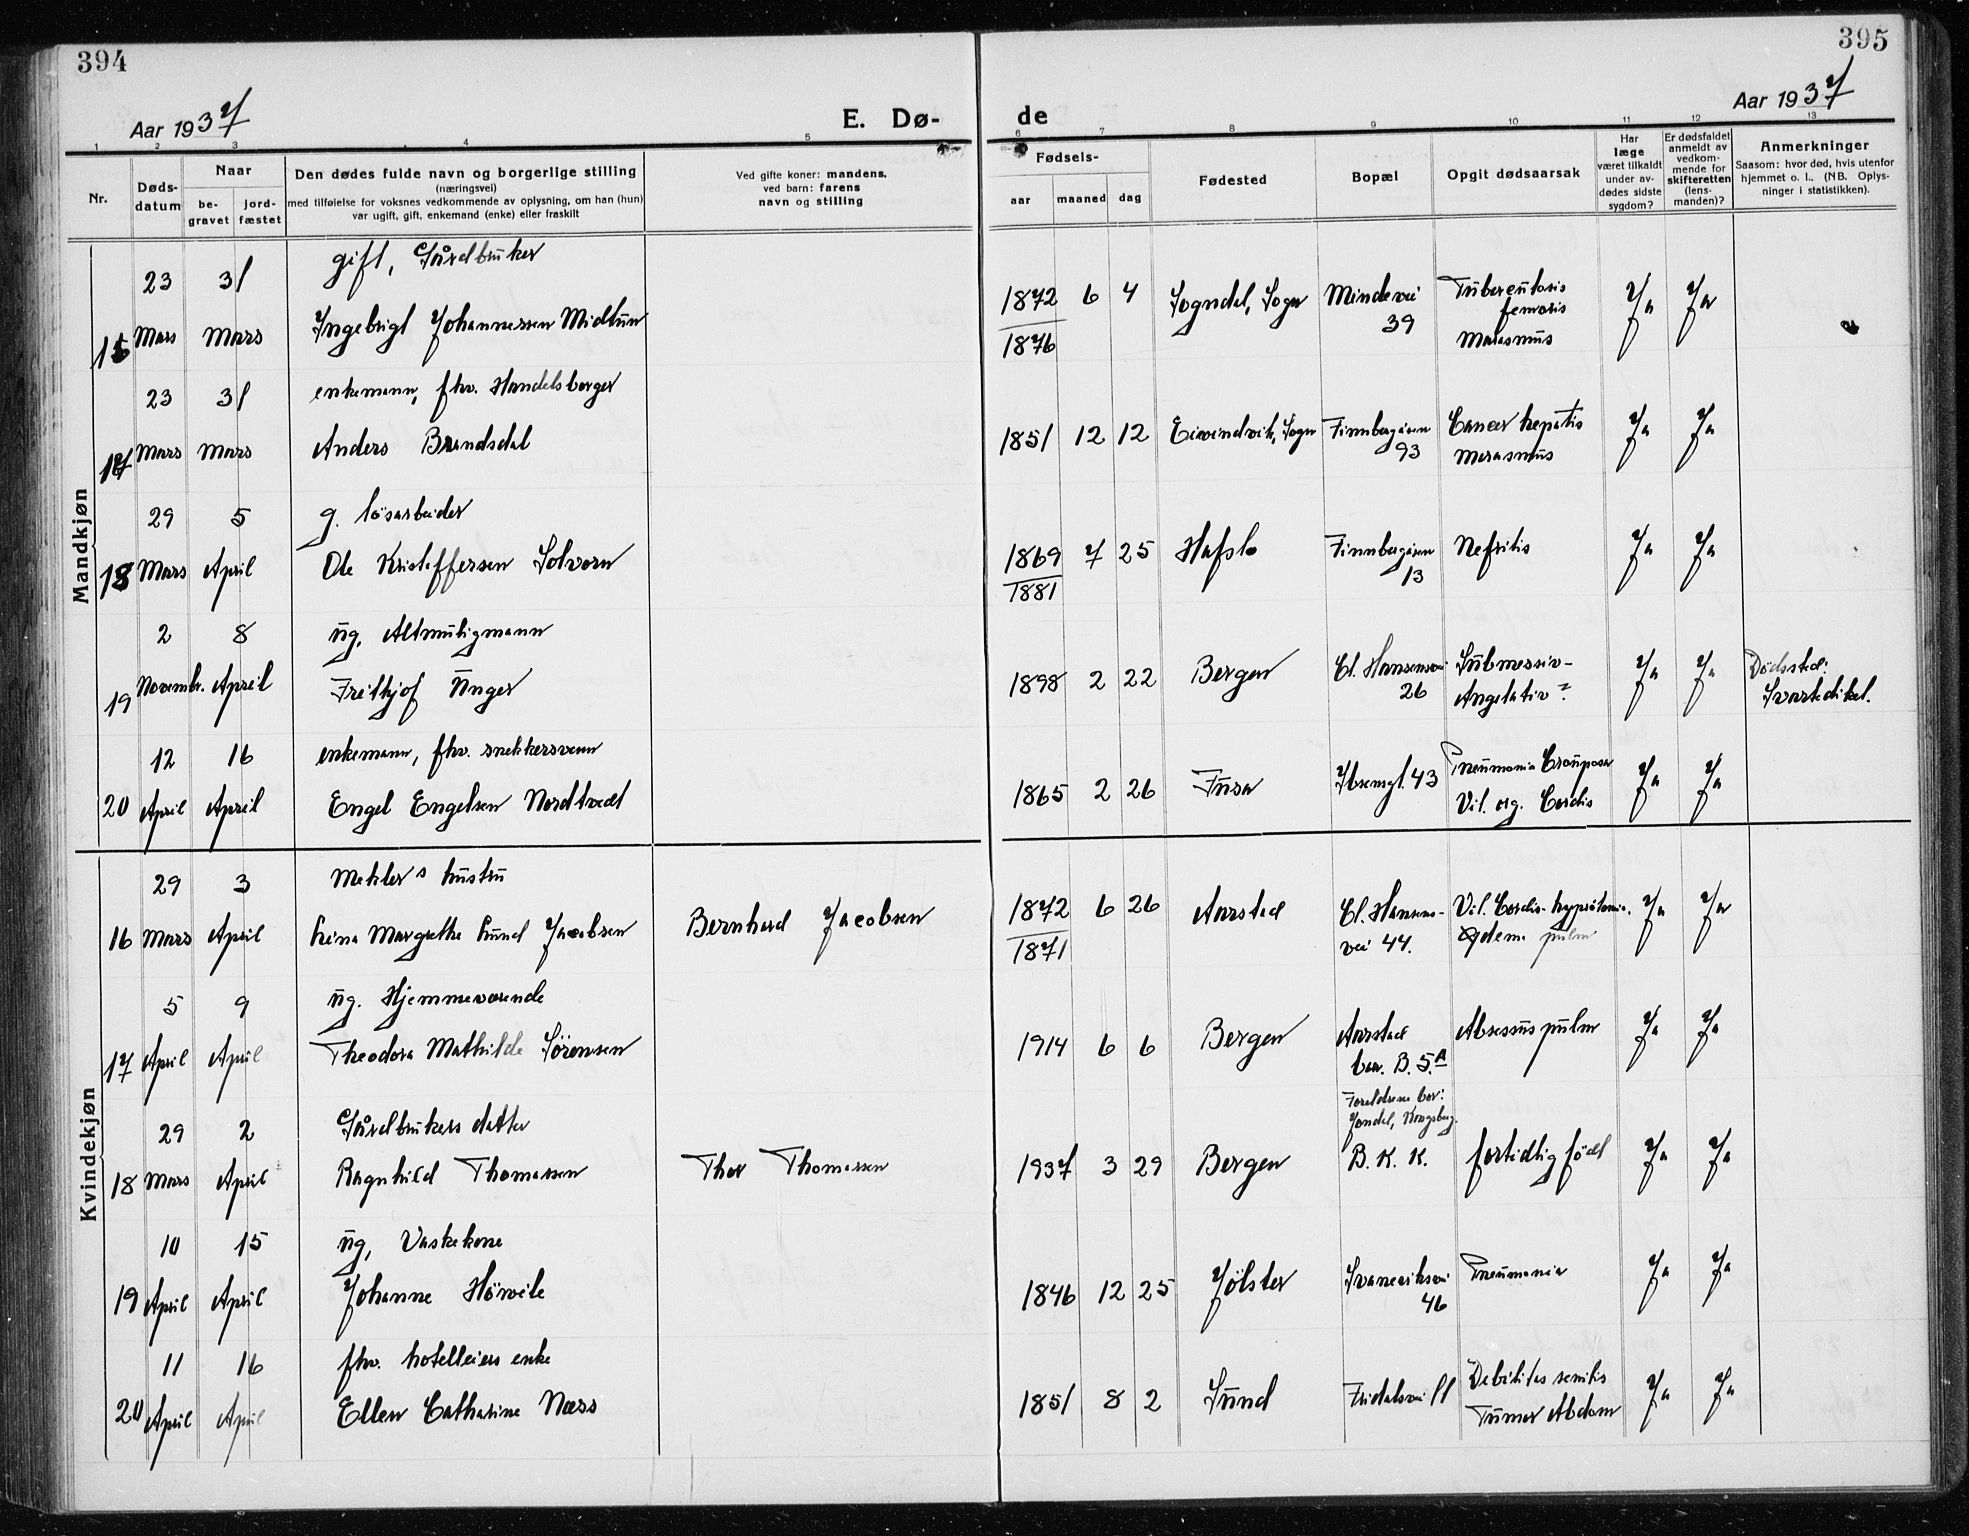 394
395
Aar 1937
E. Dø-
de
Aar 1937
1 2 3 4 5 6 7 8 9 10 11 12 13
Nr.
Døds-
datum
Naar
be-
gravet
jord-
fæstet
Den dødes fulde navn og borgerlige stilling
(næringsvei)
med tilføielse for voksnes vedkommende av oplysning, om han (hun)
var ugift, gift, enkemand (enke) eller fraskilt
Ved gifte koner: mandens,
ved barn: farens
navn og stilling
Fødsels-
aar maaned dag
Fødested
Bopæl
Opgit dødsaarsak
Har
læge
været tilkaldt
under av-
dødes sidste
sygdom?
Er dødsfaldet
anmeldt av
vedkom-
mende for
skifteretten
(lens-
manden)?
Anmerkninger
Saasom: hvor død, hvis utenfor
hjemmet o. l.. (NB. Oplys-
ninger i statistikken).
Mandkjøn
23 31 gift, Gårdbruker
Mars Mars Ingebrigt Johannessen Midtun
1872 6 4 Sogndal, Sogn Mindevei Tuberculosis Ja Ja
39 femoris
1876 Marasmus
23 31 enkemann, fhv. Handelsborger
17 Mars Mars Anders Brandsdal
1851 12 12 Eivindvik, Sogn Finnbergåsen Cancer hepatis Ja Ja
93 Marasmus
29 5 g. løsarbeider
18 Mars April Ole Kristoffersen Solvorn
1869 7 25 Hafslo Finnbergåsen Nefritis Ja Ja
1881 13
2 8 ug, Altmuligmann
19 Novembr. April Freithjof Unger
1898 2 22 Bergen Cl. Hansensvei Ja Ja Dødssted:
26 Svartediket.
12 16 enkemann, fhv. snekkersvenn
20 April April Engel Engelsen Nordtvedt
1865 2 26 Fusa Ibsensgt. 43 Pneumonia Crouposa Ja Ja
Vit. org. Cordis
Kvindekjøn
29 3 Mekler's hustru
16 Mars April Lina Margrethe Lund Jacobsen Bernhard Jacobsen
1872 6 26 Aarstad Cl. Hansens- Vit. Cordis Ja Ja
1871 vei 44. Ødema pulm
5 9 ug. Hjemmeværende
17 April April Theodora Mathilde Sørensen
1914 6 6 Bergen Aarstad Absessus pulm Ja Ja
bar. B. 5.A
29 2 Gårdbrukers datter
18 Mars April Ragnhild Thomassen Thor Thomassen
Foreldrene bor:
Jondal, Kongsberg.
1937 3 29 Bergen B. K. K. fortidlig født Ja Ja
10 15 ug, Vaskekone
19 April April Johanne
1846 12 25 Jølster Svaneviksvei Pneumonia Ja Ja
46
11 16 fhv. hotelleiers enke
20 April April Ellen Catharine Næss
1851 8 2 Sund Fridalsvei 11 Debilitas senilis Ja Ja
Tumor Abdom